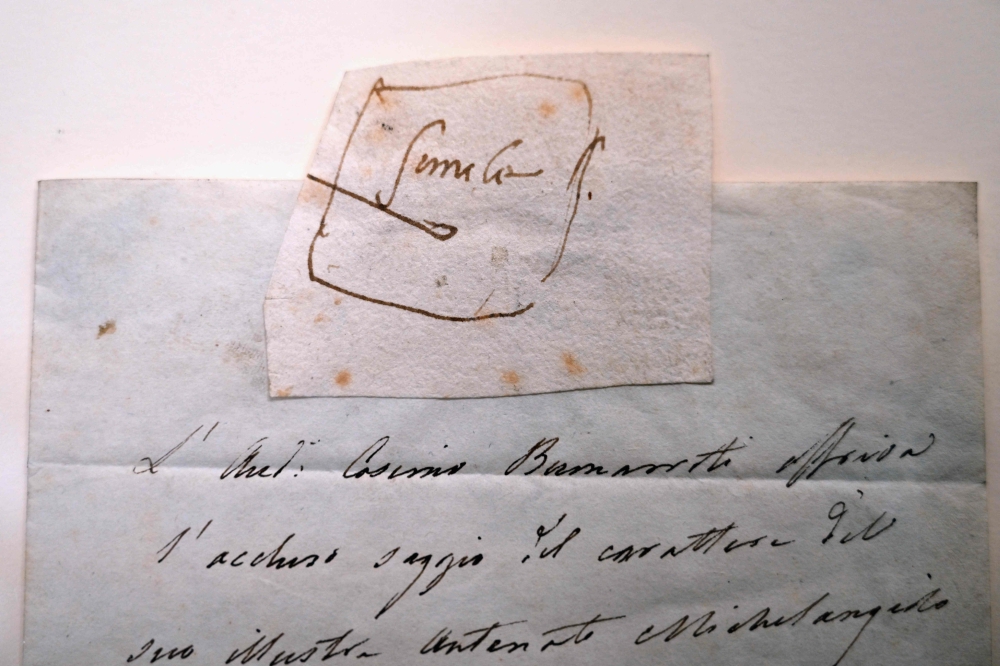 L' Aud.: Cosimo Buonarroti
l'accluso saggio del carattere del
suo illustre Antenato Michelangiolo